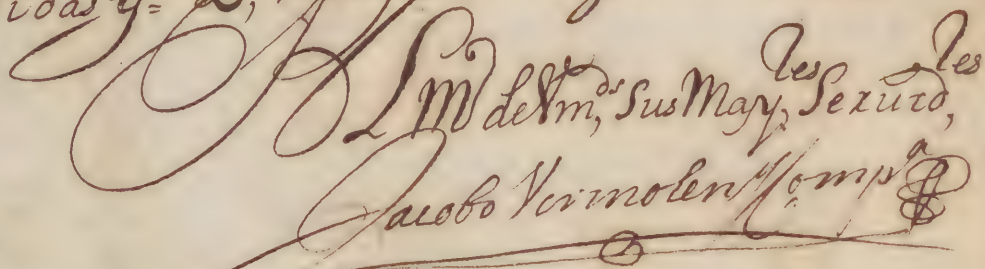 LM de Vmds, Sus Mayles, Seruidles,
Jacobo Vermolen y Compa